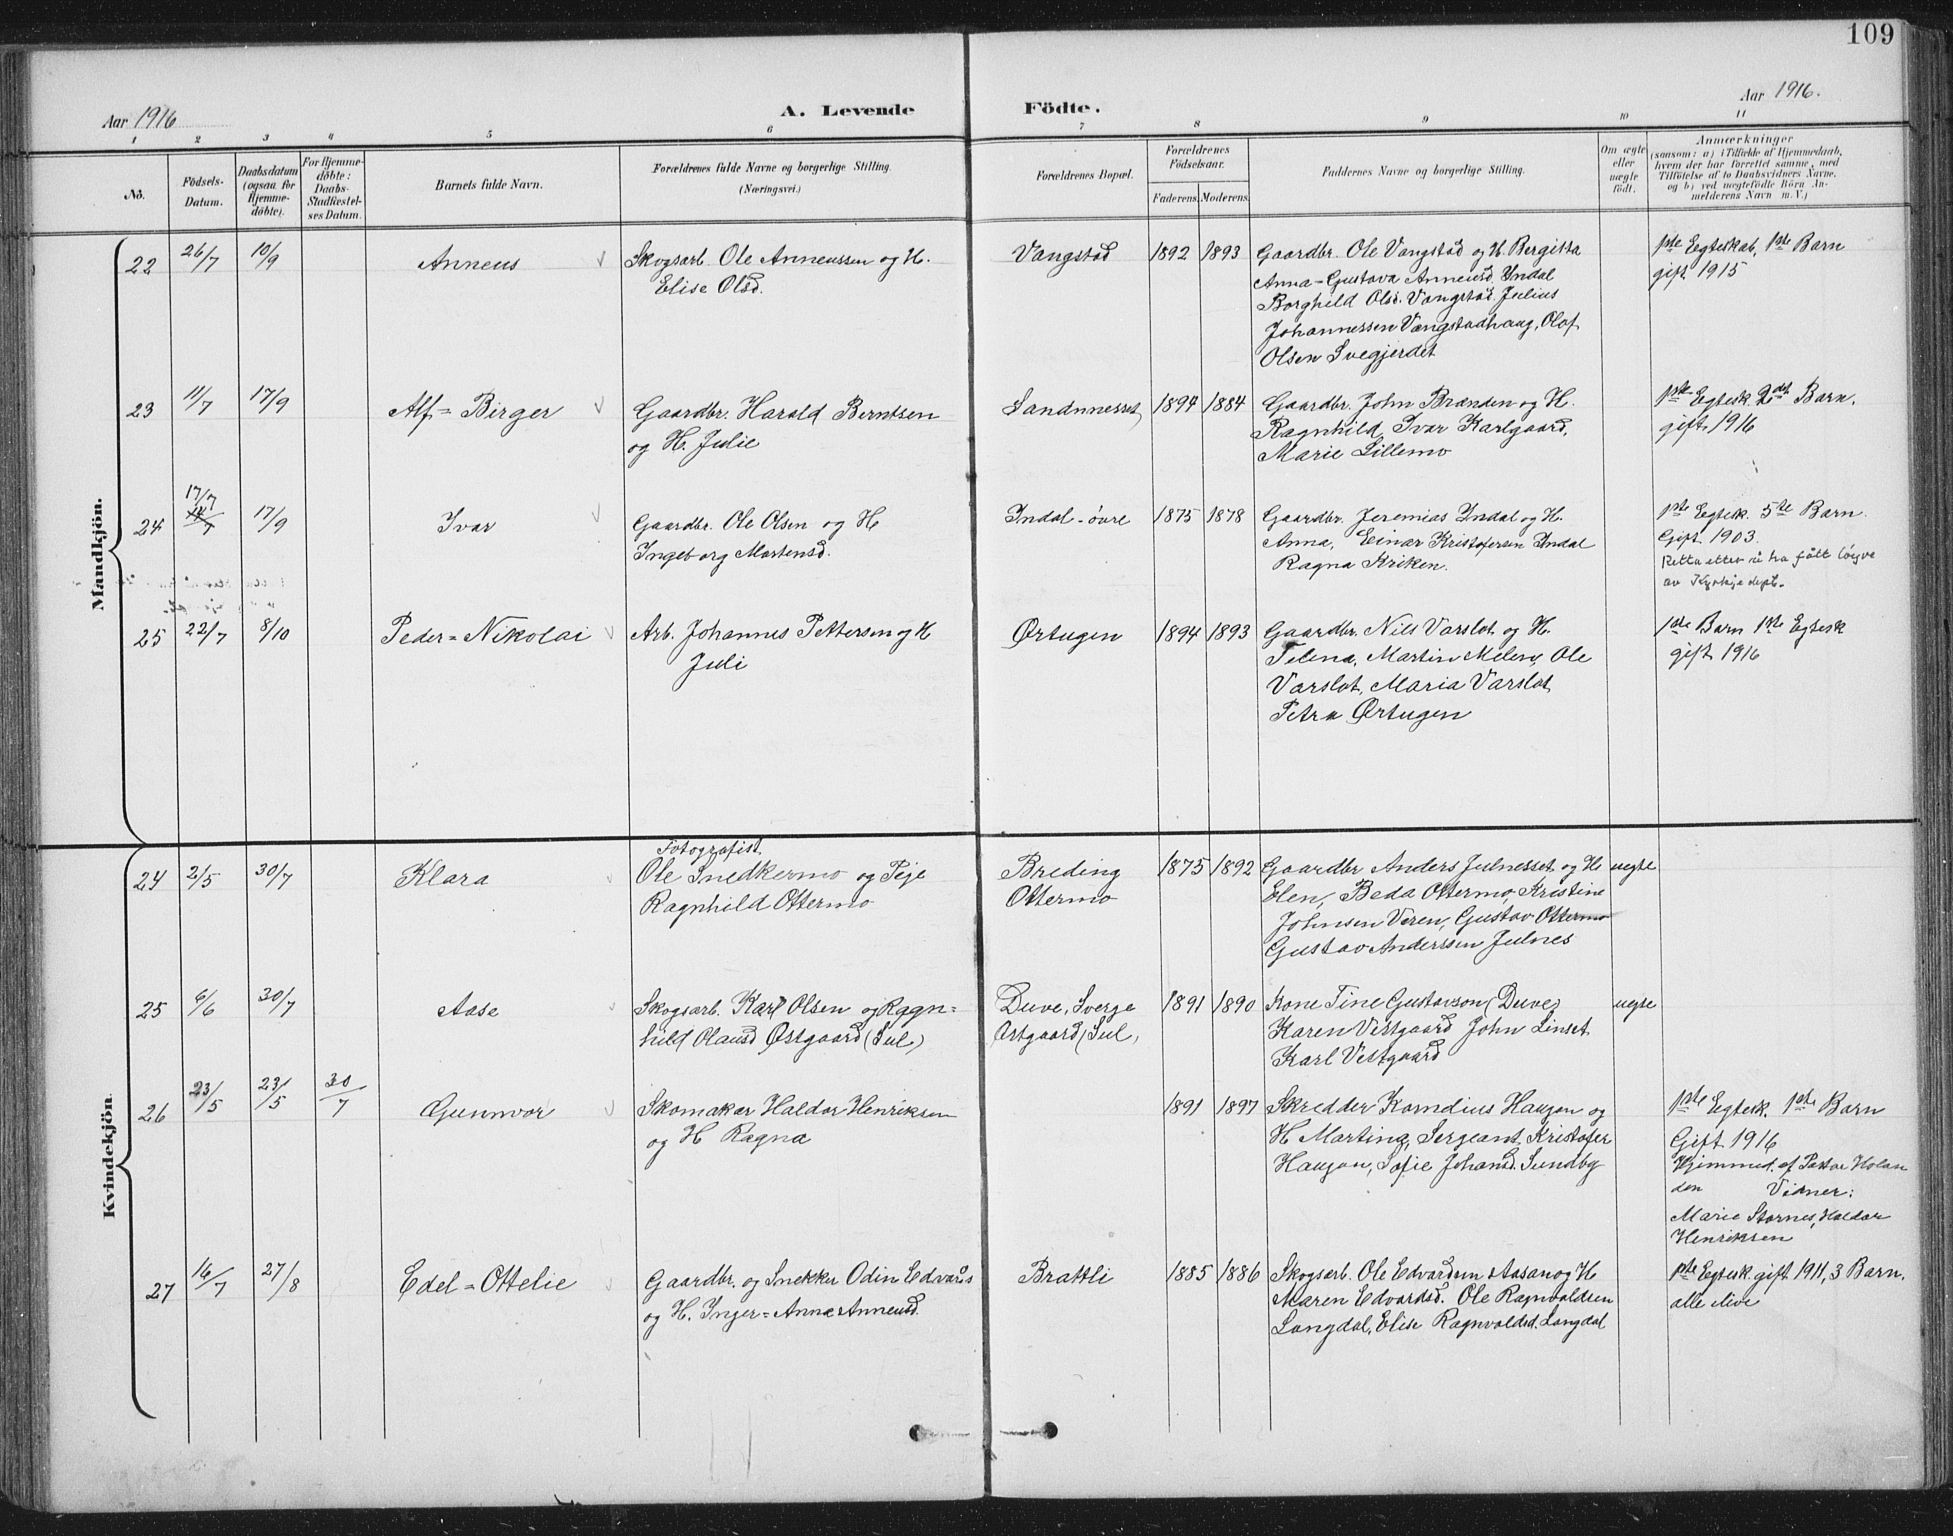 109
Aar 1916
A. Levende Födte.
Aar 1916.
1 2 3 4 5 6 7 8 9 10 11
No.
Födsels-
Datum.
Daabsdatum
(ogsaa for
Hjemme-
döbte).
For Hjemme-
döbte:
Daabs-
Stadfæstel-
ses Datum.
Barnets fulde Navn.
Forældrenes fulde Navne og borgerlige Stilling.
(Næringsvei.)
Forældrenes Bopæl.
Forældrenes
Födselsaar.
Faderens. Moderens.
Faddernes Navne og borgerlige Stilling.
Om ægte
eller
uægte
födt.
Anmærkninger
(saasom: a) i Tilfælde af Hjemmedaab,
hvem der har forrettet samme, med
Tilföielse af to Daabsvidners Navne,
og b) ved uægtefödte Börn An-
melderens Navn m. V.)
Mandkjön.
22
26/7
10/9
Anneus
Skogsarb. Ole Anneussen og H.
Elise Olsd.
Vangstad
1892 1893
Gaardbr. Ole Vangstad og H. Bergitta
Anna-Gustava Anneusd. Yndal
Borghild Olsd. Vangstad. Julius
Johannessen Vangstadhaug, Olaf
Olsen Svegjerdet
1ste Egteskab, 1ste Barn
gift 1915
23
11/7
17/9
Alf=Birger
Gaardbr. Harald Berntsen
og H. Julie
Sandnnesset
1894 1884
Gaardbr. John Brænden og H.
Ragnhild, Ivar Karlgaard,
Marie Lillemo
1ste Egtesk. 2det Barn.
gift 1916
24
17/7
17/9
Ivar
Gaardbr. Ole Olsen og H
Ingeborg Martensd.
Indal-övre
1875 1878
Gaardbr. Jeremias Yndal og H.
Anna, Einar Kristofersen Yndal
Ragna Kriken.
1ste Egtesk. 5te Barn.
Gift. 1903.
Retta etter å ha fått løyve
av Kyrkjedept.
25
22/7
8/10
Peder=Nikolai
Arb. Johannes Pettersen og H
Juli
Ørtugen
1894 1893
Gaardbr. Nils Varslot og H.
Telena, Martin Melen, Ole
Varslot, Maria Varslot,
Petra Ørtugen
1ste Barn 1ste Egtesk
gift 1916
Kvindekjön.
24
2/5
30/7
Klara
Fotografist.
Ole Snedkermo og Pige
Ragnhild Ottermo
Breding
Ottermo
1875 1892
Gaardbr Anders Julnesset og H
Elen, Beda Ottermo, Kristine
Johnsen Veren, Gustav Ottermo
Gustav Anderssen Julnes
uegte
25
6/6
30/7
Aase
Skogsarb. Karl Olsen og Ragn=
hild Olausd Østgaard (Sul)
Duve, Sverge
Østgaard (Sul,
1891 1890
Kone Tine Gustavson (Duve)
Karen Vestgaard John Linset
Karl Vestgaard
uegte
26
23/5
23/5
30/7
Gunnvor
Skomaker Haldor Henriksen
og H Ragna
1891 1897
Skredder Kornelius Haugan og
H Martina, Sergeant Kristofer
Haugan, Sofie Johansd. Sundby
1ste Egtesk. 1ste Barn
Gift 1916
Hjimmed. af Pastor Holan
den Vidner:
Marie Stornes, Haldor
Henriksen
27
16/7
27/8
Edel=Ottelie
Gaardbr. og Snekker Odin Edvards
og H. Inger=Anna Anneusd.
Brattli
1885 1886
Skogsarb. Ole Edvardsen Aasan og H
Maren Edvardsd. Ole Ragnvaldsen
Langdal, Elise Ragnvaldsd. Langdal
1ste Egtesk. gift 1911, 3 Barn,
alle ilive